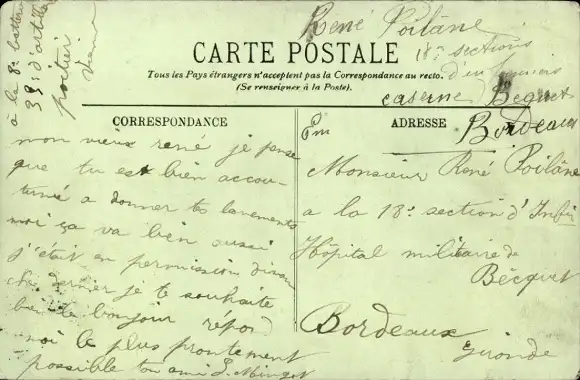 René Poilâne
18e sections
d'infirmiers
caserne Béquet
Bordeaux
à la 8e batterie
33e d'artillerie
poitiers
CARTE POSTALE
Tous les Pays étrangers n'acceptent pas la Correspondance au recto.
(Se renseigner à la Poste).
CORRESPONDANCE
mon vieux rené je pense
que tu est bien accou-
tumé a donner tes lavements
moi ça va bien aussi
j'était en permission diman
che dernier je te souhaite
bien le bonjour répond
moi le plus prontement
possible ton ami L. Minget
ADRESSE
Monsieur René Poilâne
a la 18e section d'Infir
Hôpital militaire de
Bécquet
Bordeaux
Gironde